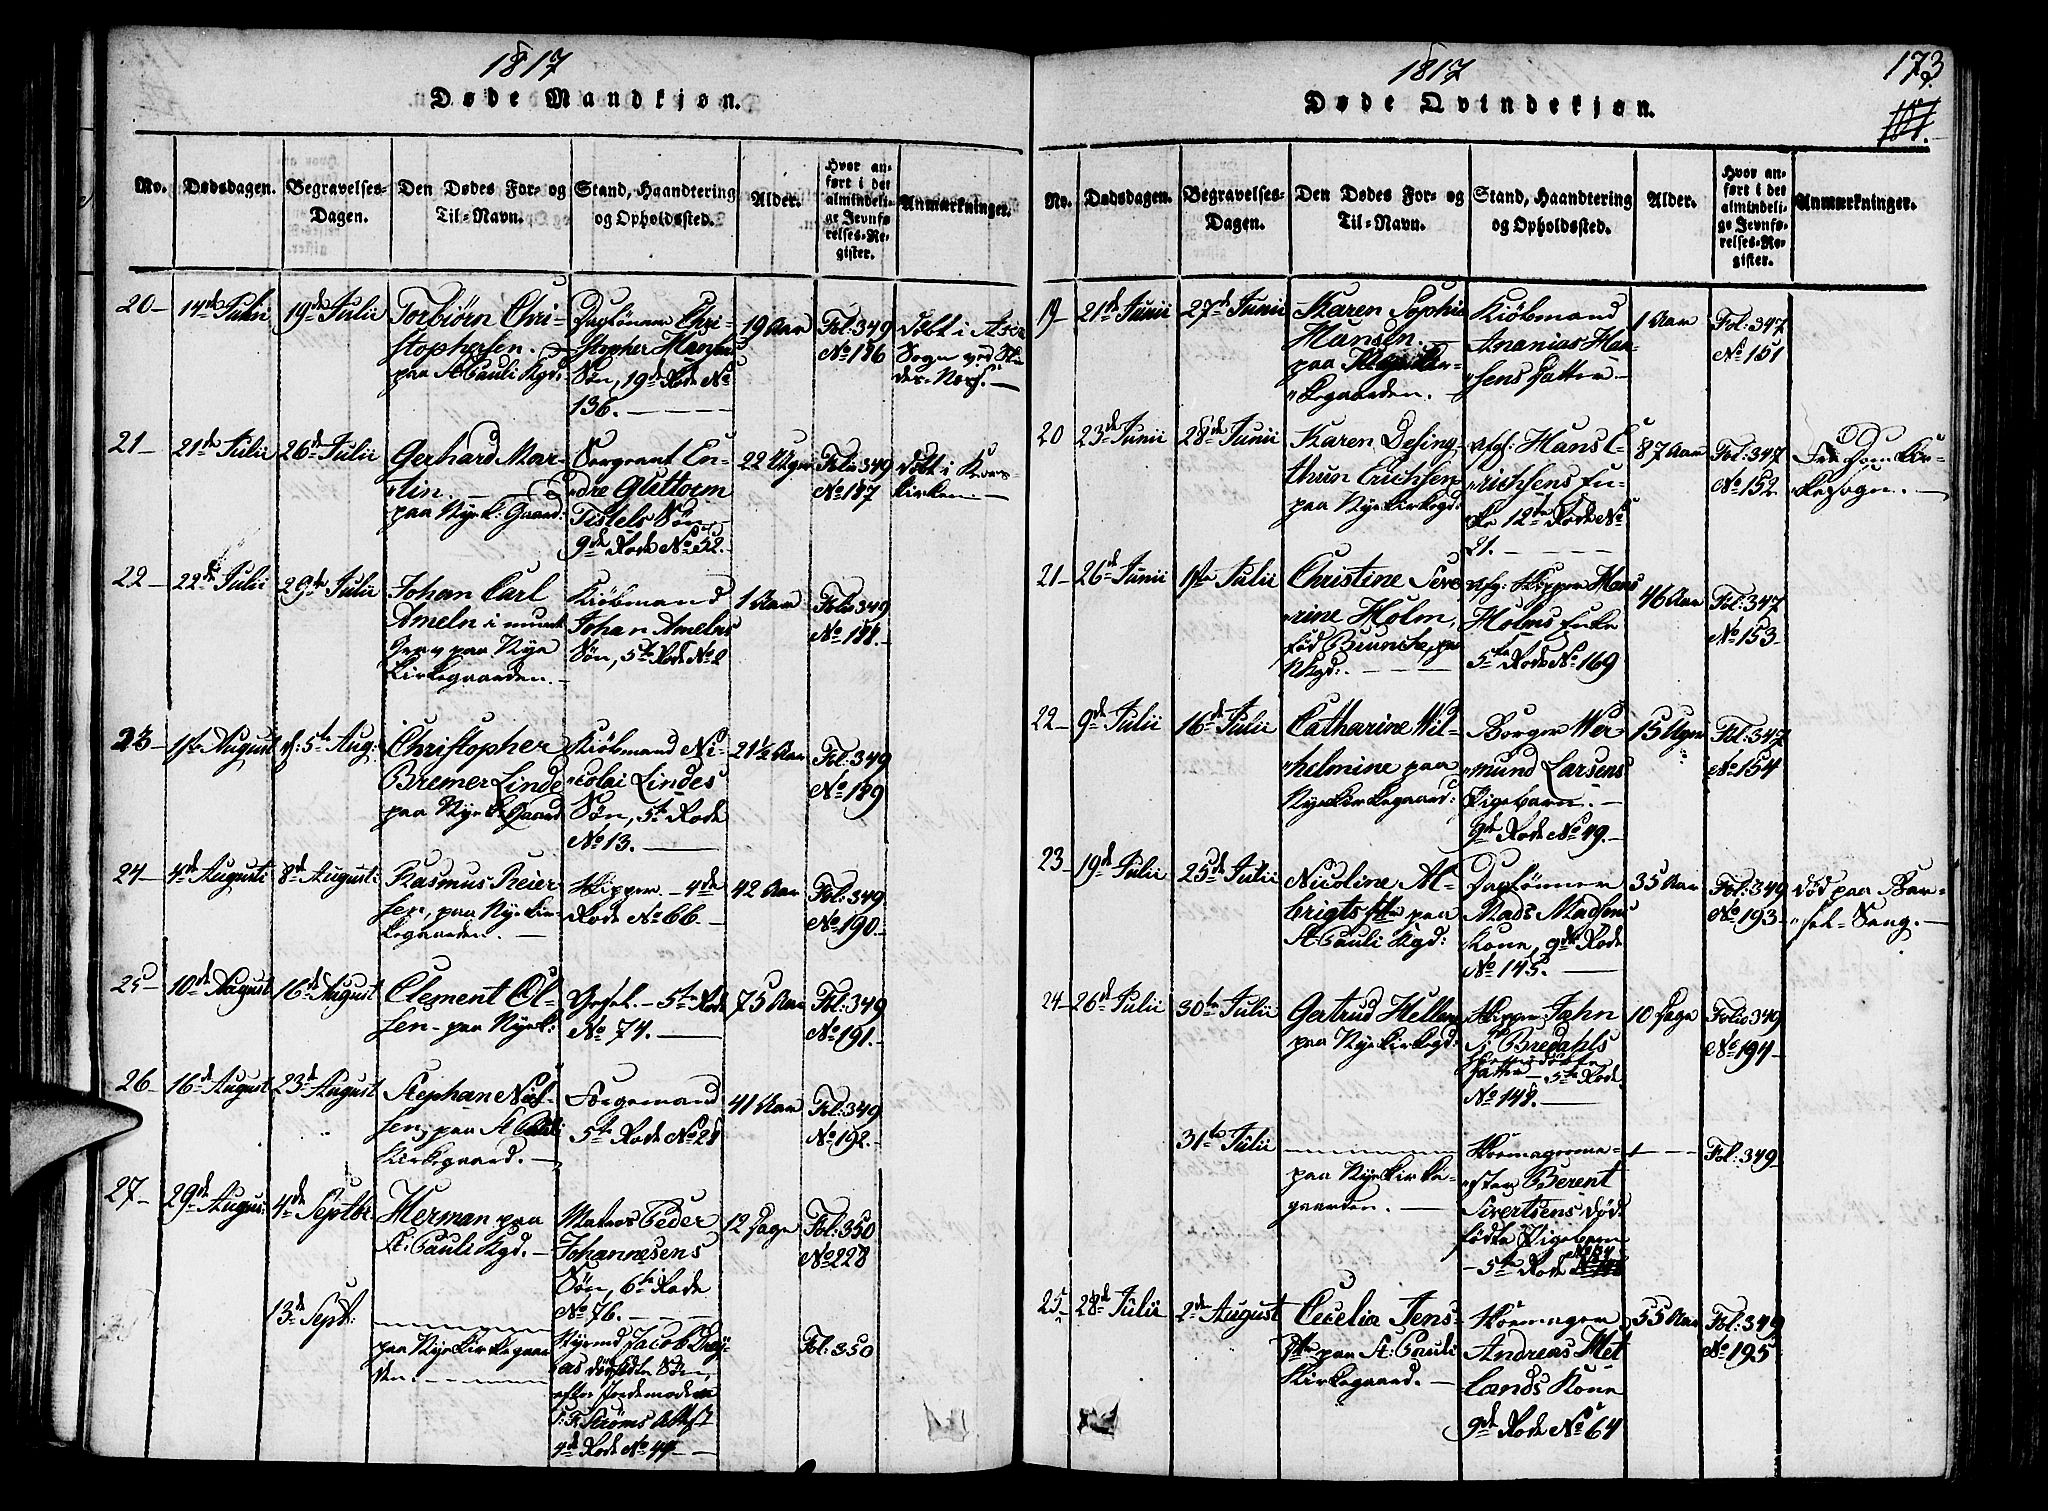 1817
Døde Mandkjøn.
No.
Dødsdagen.
Begravelses-
Dagen.
Den Dødes For- og
Til-Navn.
Stand, Haandtering
og Opholdssted.
Alder.
Hvor an-
ført i det
almindeli-
ge Jevnfø-
relses-Re-
gister.
Anmærkninger.
20-
14de Julii
19de Julii
Torbiørn Chri-
stophersen.
paa St Pauli Kgd:
Daglønner Chri-
stopher Hansens
Søn, 19de Rode No
136.
19 Aar
Fol: 349
No 186
Døbt i
Sogn ved
21-
21de Julii
26de Julii
Gerhard Mar-
tin.
paa Nyek: Gaard:
Sergeant En-
dre Guttorm
Tistels Søn
9de Rode No 52.
22 Uger
Folio 349
No 187
Døbt i Kors-
kirken.
22-
22de Julii
29de Julii
Johan Carl
Ameln i muret
Grav paa Nye
Kirkegaarden.
Kiøbmand
Johan Amelns
Søn, 5te Rode No 2
1 Aar
Folio 349
No 188.
23-
1ste August
d: 5te Aug:
Christopher
Bremer Linde
paa Nye k: Gaard
Kiøbmand Ni-
colai Lindes
Søn, 5te Rode
No 13.
21½ Aar
Fol: 349
No 189
24-
4de Augusti
8de August:
Rasmus Reier
sen, paa Nyekir-
kegaarden.
Skipper. - 4de
Rode No 66.
42 Aar
Fol: 349
No 190.
25-
10de August
16de August
Clement Ol-
sen- paa Nyek:
5te Rode
No 74.
75 Aar
Fol: 349
No 191.
26-
16de August
23de August
Stephan Niel-
sen, paa St Pauli
Kirkegaard.
5te Rode No 28
41 Aar
Fol: 349
No 192.
27-
29de August:
4de Septbr
Herman paa
St: Pauli Kgd.
Matros Peder
Johannesens
Søn, 6te Rode
No 76.
12 Dage
Fol: 350
No 228
13de Sept:
paa Nyekirkegaar
den.
Jacob
dødfødte Søn,
efter Jordemoder
Strøms Attest
4de Rode No 44
Fol: 350
1817
173
Døde Qvindekjøn.
No.
Dødsdagen.
Begravelses-
Dagen.
Den Dødes For- og
Til-Navn.
Stand, Haandtering
og Opholdssted.
Alder.
Hvor an-
ført i det
almindeli-
ge Jevnfø-
relses-Re-
gister.
Anmærkninger.
19-
21de Junii
27de Junii
Karen Sophie
Hansen.
paa
kegaarden.
Kiøbmand
Ananias Han-
sens Datter
1 Aar
Fol: 347
No 151
20
23de Junii
28de Junii
Karen Desing-
thun Erichsen
paa Nyekirkegd:
afg: Hans E-
richsens En-
ke 12te Rode No
21.
87 Aar
Fol: 347
No 152
Fra Domkir-
kesogn.
21-
26de Junii
1ste Julii
Christine Seve
rine Holm,
fød paa
Nkgd:
afg: Skipper Hans
Holms Enke
5te Rode No 169
46 Aar
Fol: 347
No 153
22-
9de Julii
16de Julii
Catharine Wil-
helmine paa
Nyekirkegaard:
Borger Wer-
mund Larsens
Pigebarn.
9de Rode No 49.
15 Uger
Fol: 347
No 154
23
19de Julii
25de Julii
Nicoline Al-
brigts dtr paa
St Pauli Kgd:
Daglønner
Mads Madsens
Kone, 9de Rode
No 145.
35 Aar
Fol: 349
No 193
død paa Bar-
sel- Seng.
24-
26de Julii
30te Julii
Gertrud Hellen
paa Nyekirkegd:
Skipper John
Bredahls
Datter - 5te Rode
No 148.
10 Dage
Folio 349
No 194
31te Julii
paa Nyekirke-
gaarden.
Skoemagerme-
ster Berent
Sivertsens død-
fødte Pigebarn
- 5te Rode
Fol: 349
25-
28de Julii
2de August
Cecelia Jens-
dtr paa St: Pauli
Kirkegaard.
Skoemager
Andreas Met
lands Kone
9de Rode No 64
55 Aar
Fol: 349
No 195